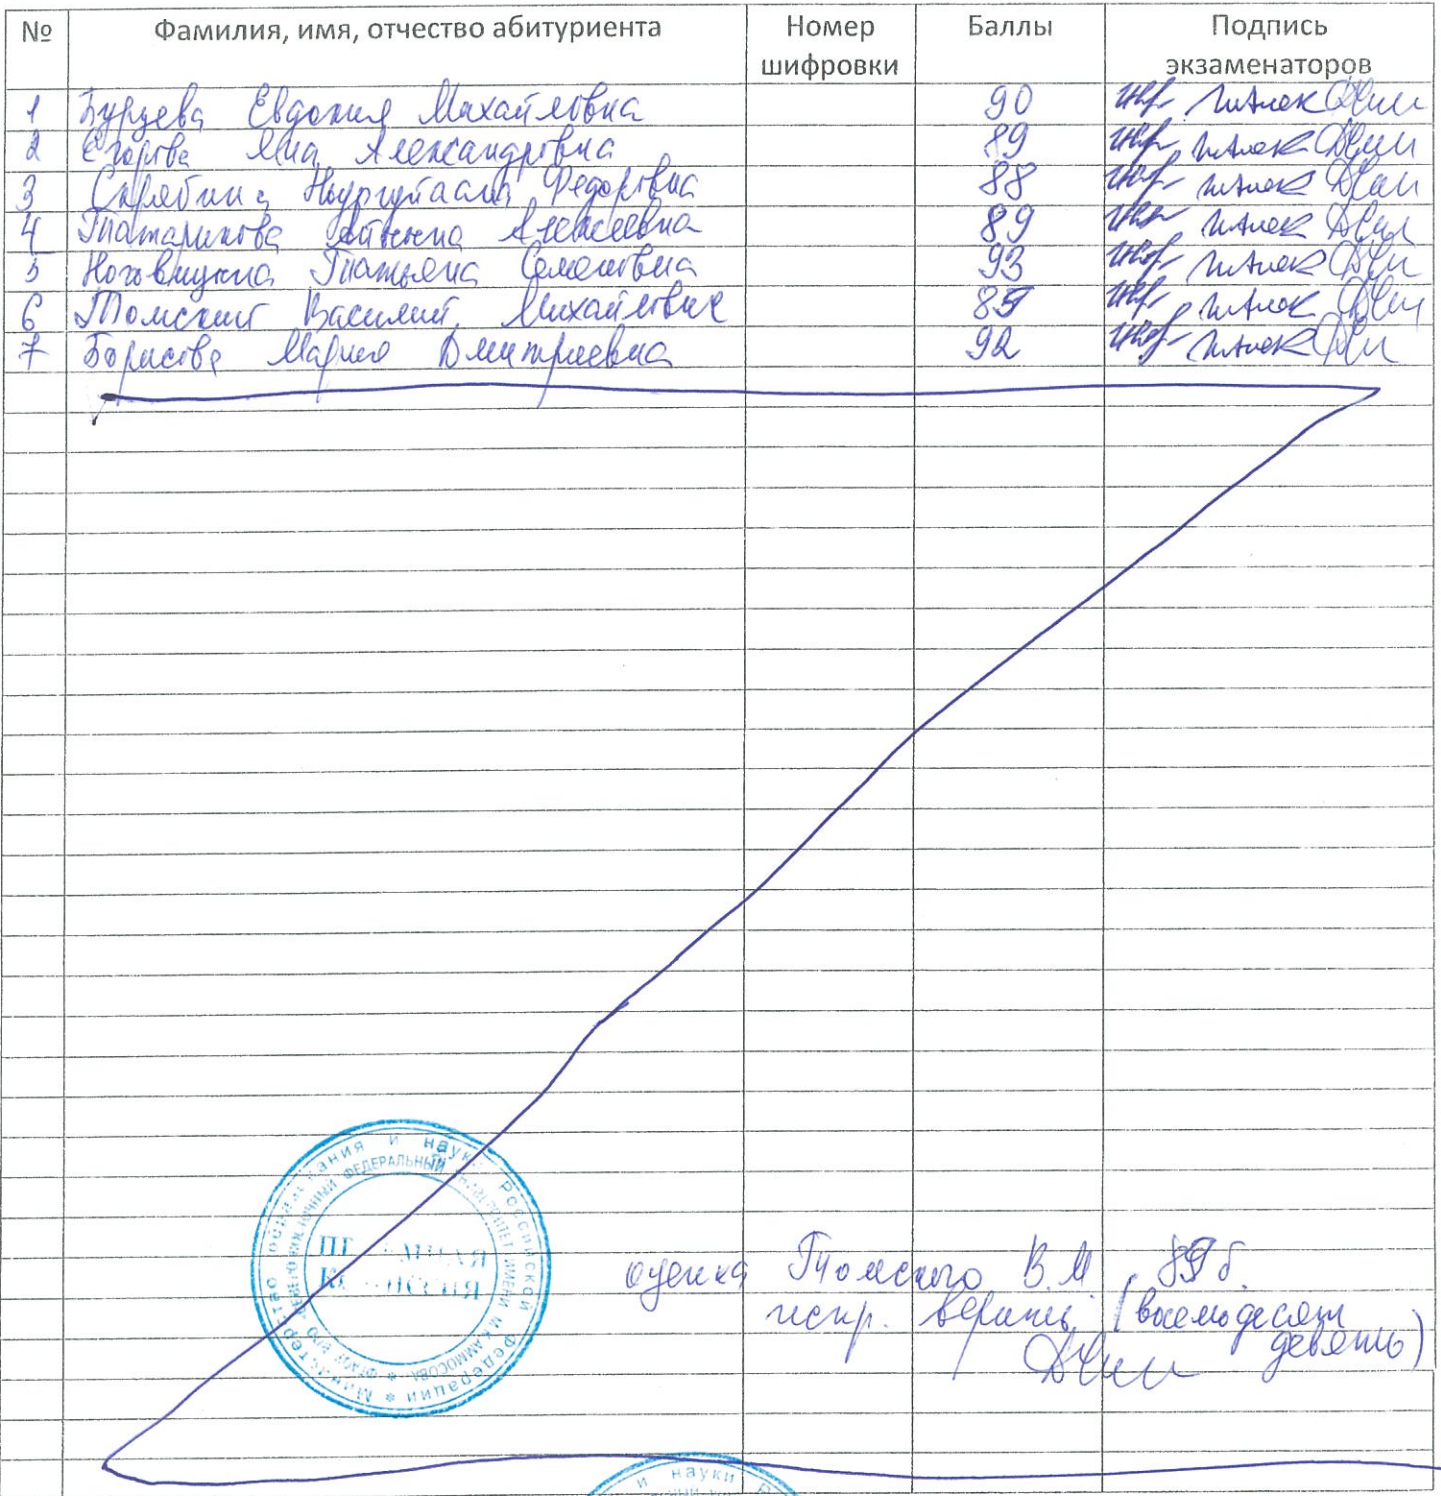 № Фамилия, имя, отчество абитуриента Номер шифровки Баллы Подпись экзаменаторов
1 Бурцева Евдокия Михайловна 90
2 Егорова Яна Александровна 89
3 Скрябина Нюргуйаана Федоровна 88
4 Татаринова Айыына Алексеевна 89
5 Ноговицына Татьяна Семеновна 93
6 Томский Василий Михайлович 89
7 Борисова Мария Дмитриевна 92
Министерство образования и науки Российской Федерации
ФЕДЕРАЛЬНЫЙ УНИВЕРСИТЕТ ИМЕНИ М.К.АММОСОВА
КОМИССИЯ
оценка Томского В.М 89 б.
испр. верить (восемьдесят
девять)
и науки